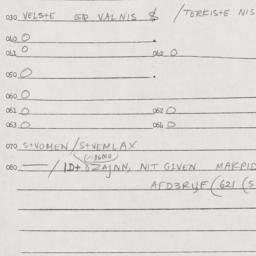 030 VELS+E ED VALNIS $ / TERKIS+E NIS
040 0
041 0 042 0
050 0
060 0
061 0 062 0
063 0 064 0
070 S+VOMEN / S+VEMLAX
080 — / ID+ ZAJNN, NIT GIVEN MARPID
AFD3RIJF (621 (5